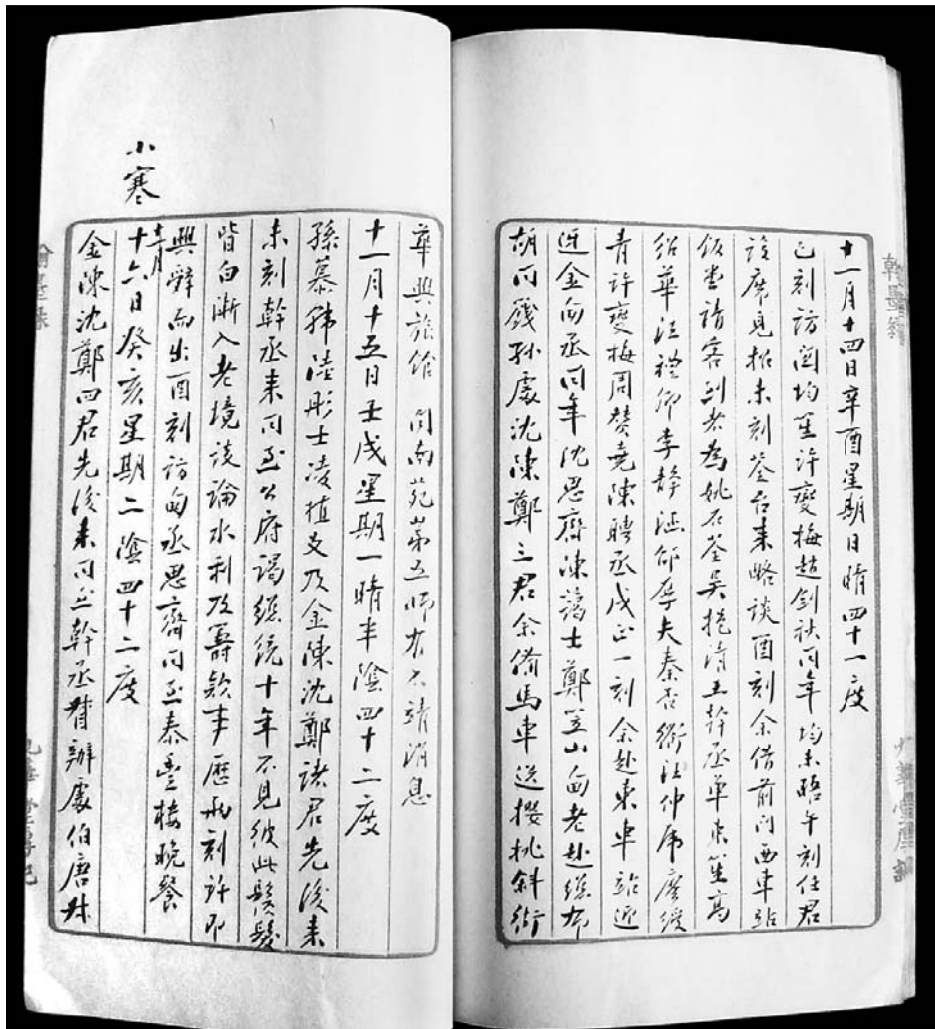 十一月十四日辛酉星期日晴四十一度
巳刻訪閏均笙許燮梅趙劍秋同年均未晤午刻任君
設席見招未刻荃台來略談酉刻余借前门西車站
飯堂請客到者為姚石荃吳挹清王幹丞單束笙高
紹華汪禮卿李靜涵邰厚夫秦晉衡汪仲虎
青許燮梅周贊堯陳聘丞戌正一刻余赴東車站迎
金甸丞同年沈思齊陳藹士鄭立山甸老赴總布
胡同錢孫處沈陳鄭三君余僱馬車送櫻桃斜街
華興旅館
十一月十五日壬戌星期一晴半陰四十二度
孫慕韓陸彤士凌植支及金陳沈鄭諸君先後來
未刻幹丞來同至公府謁總統十年不見彼此鬓髮
皆白漸入老境談論水利及籌欵事歷兩刻許即
興辭而出酉刻訪甸丞思齊同至泰豐樓晚餐
小寒
十一月
十六日癸亥星期二陰四十二度
金陳沈鄭四君先後來同至幹丞督辦處伯唐